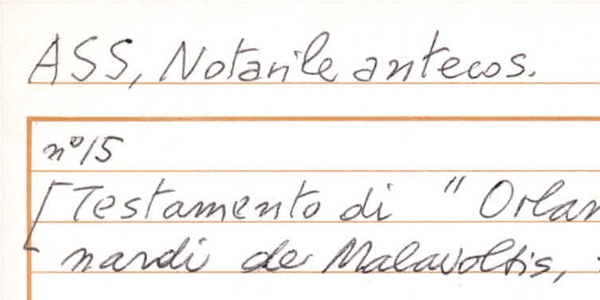 ASS, Notarile antecos.
n° 15
[Testamento di "Orlan
nardi de Malavoltis,